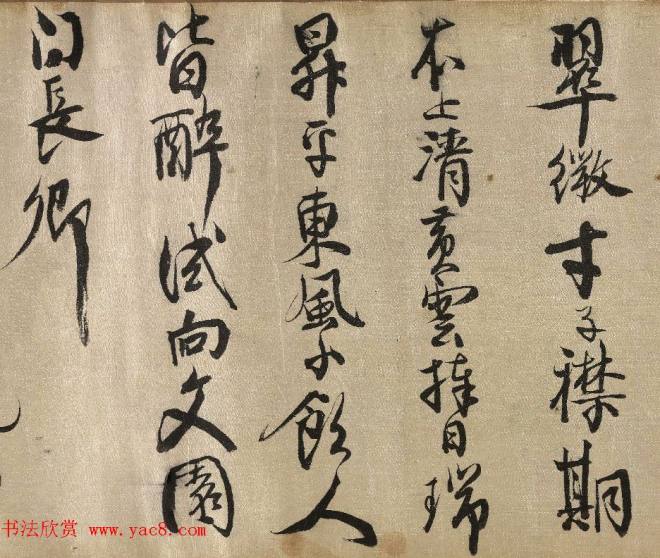 翠微才子襟期
本上清黄雲捧日瑞
昇平東風小飲人
皆醉試向文園
問長卿
书法欣赏 www.yac8.com